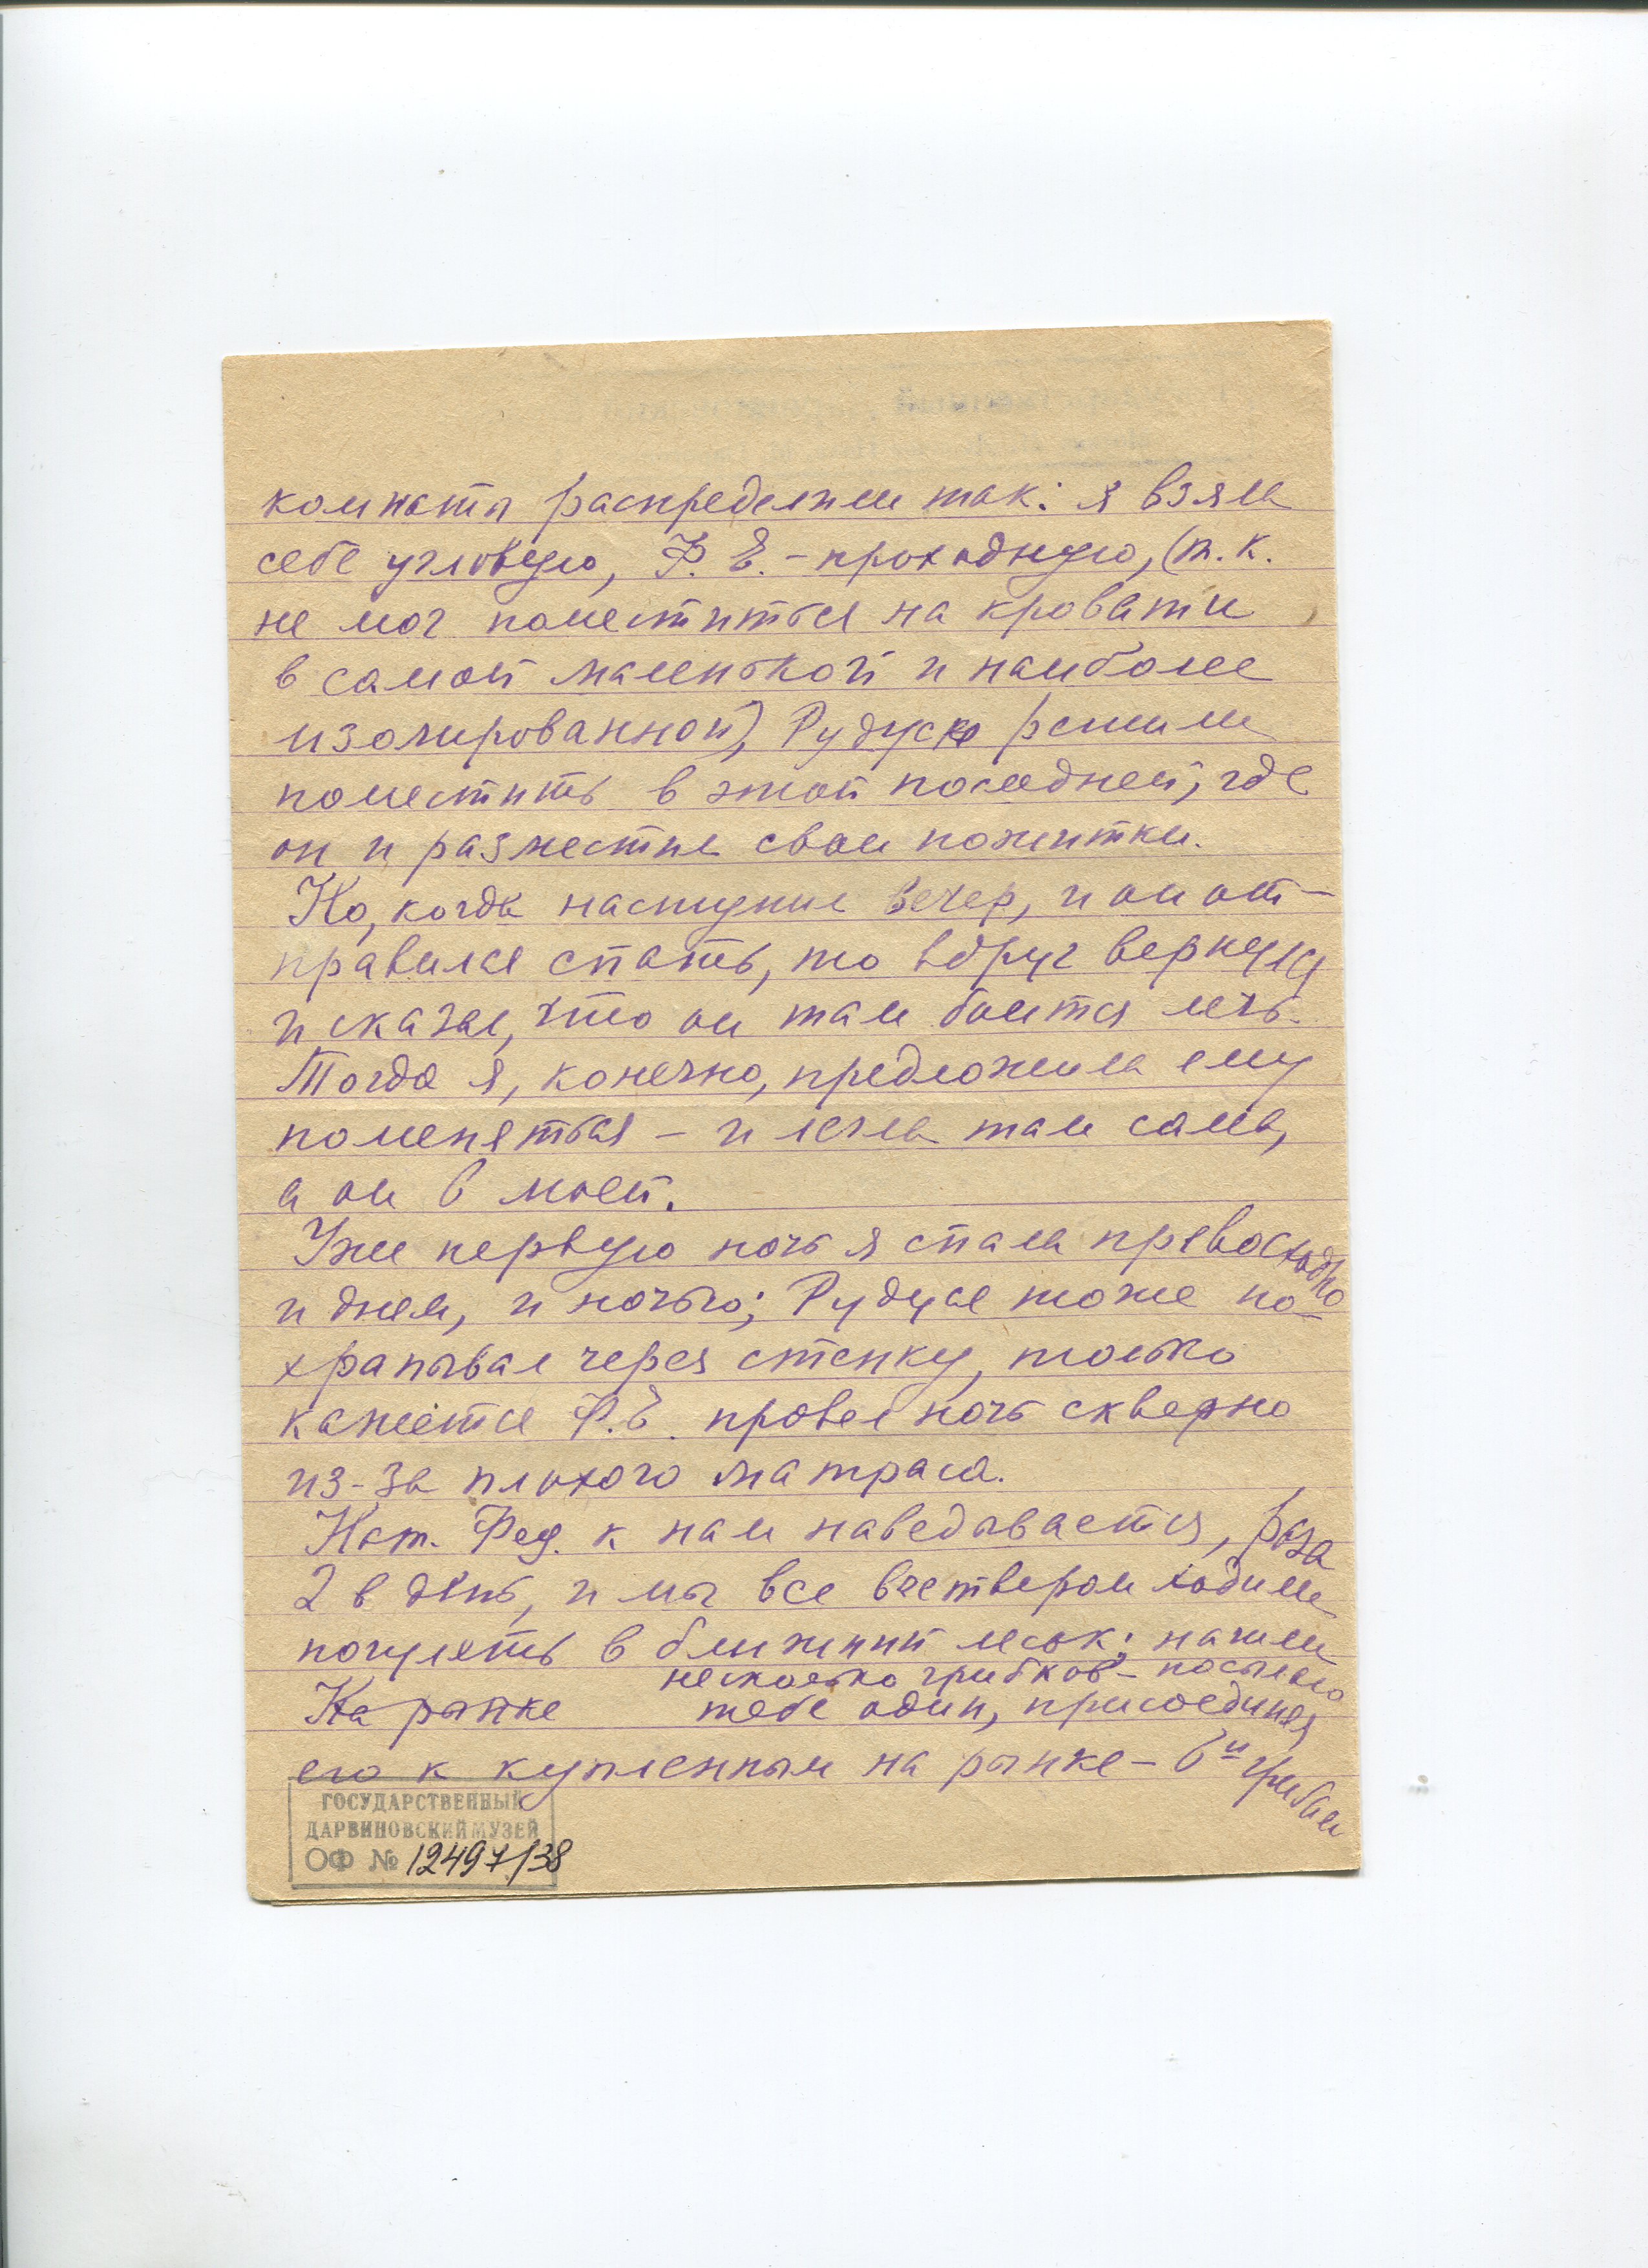 комнаты распределили так: я взяла
себе угловую, Ф. Е. - проходную, (т. к.
не мог поместиться на кровати
в самой маленькой и наиболее
изолированной), Рудуся решили
поместить в этой последней, где
он и разместил свои пожитки.
Но, когда наступил вечер, и он от-
правился спать, то вдруг вернулся
и сказал, что он там боится лечь.
Тогда я, конечно, предложила ему
поменяться - и легла там сама,
а он в моей.
Уже первую ночь я спала превосходно
и днем, и ночью; Рудуся тоже по-
храпывал через стенку, только
кажется Ф. Е. провел ночь скверно
из-за плохого матраса.
Нат. Фед. к нам наведывается, раза
2 в день, и мы все вчетвером ходили
погулять в ближний лесок; нашли
несколько грибков - посылаю
На рынке тебе один, присоединяя
его к купленным на рынке - 6и грибам
ГОСУДАРСТВЕННЫЙ
ДАРВИНОВСКИЙ МУЗЕЙ
ОФ № 12497/38